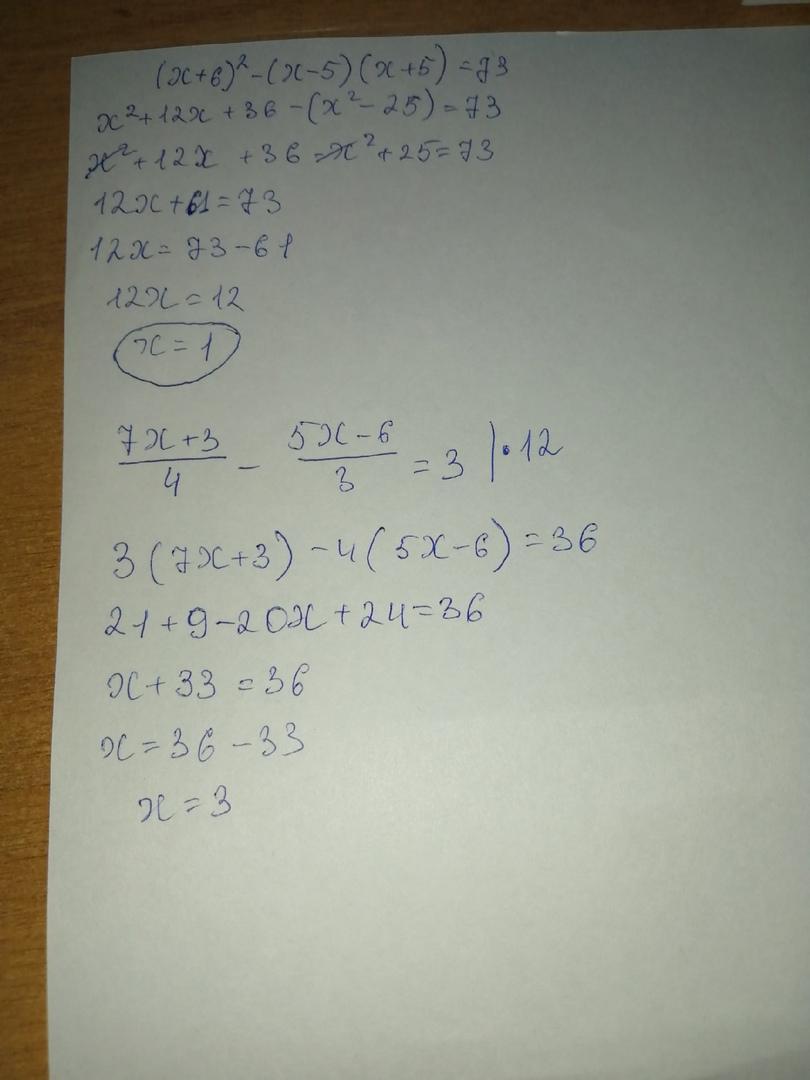 (x+6)²-(x-5)(x+5)=73
x²+12x+36-(x²-25)=73
x²+12x+36-x²+25=73
12x+61=73
12x=73-61
12x=12
x=1
(7x+3)/4 - (5x-6)/3 = 3 |·12
3(7x+3)-4(5x-6)=36
21+9-20x+24=36
x+33=36
x=36-33
x=3